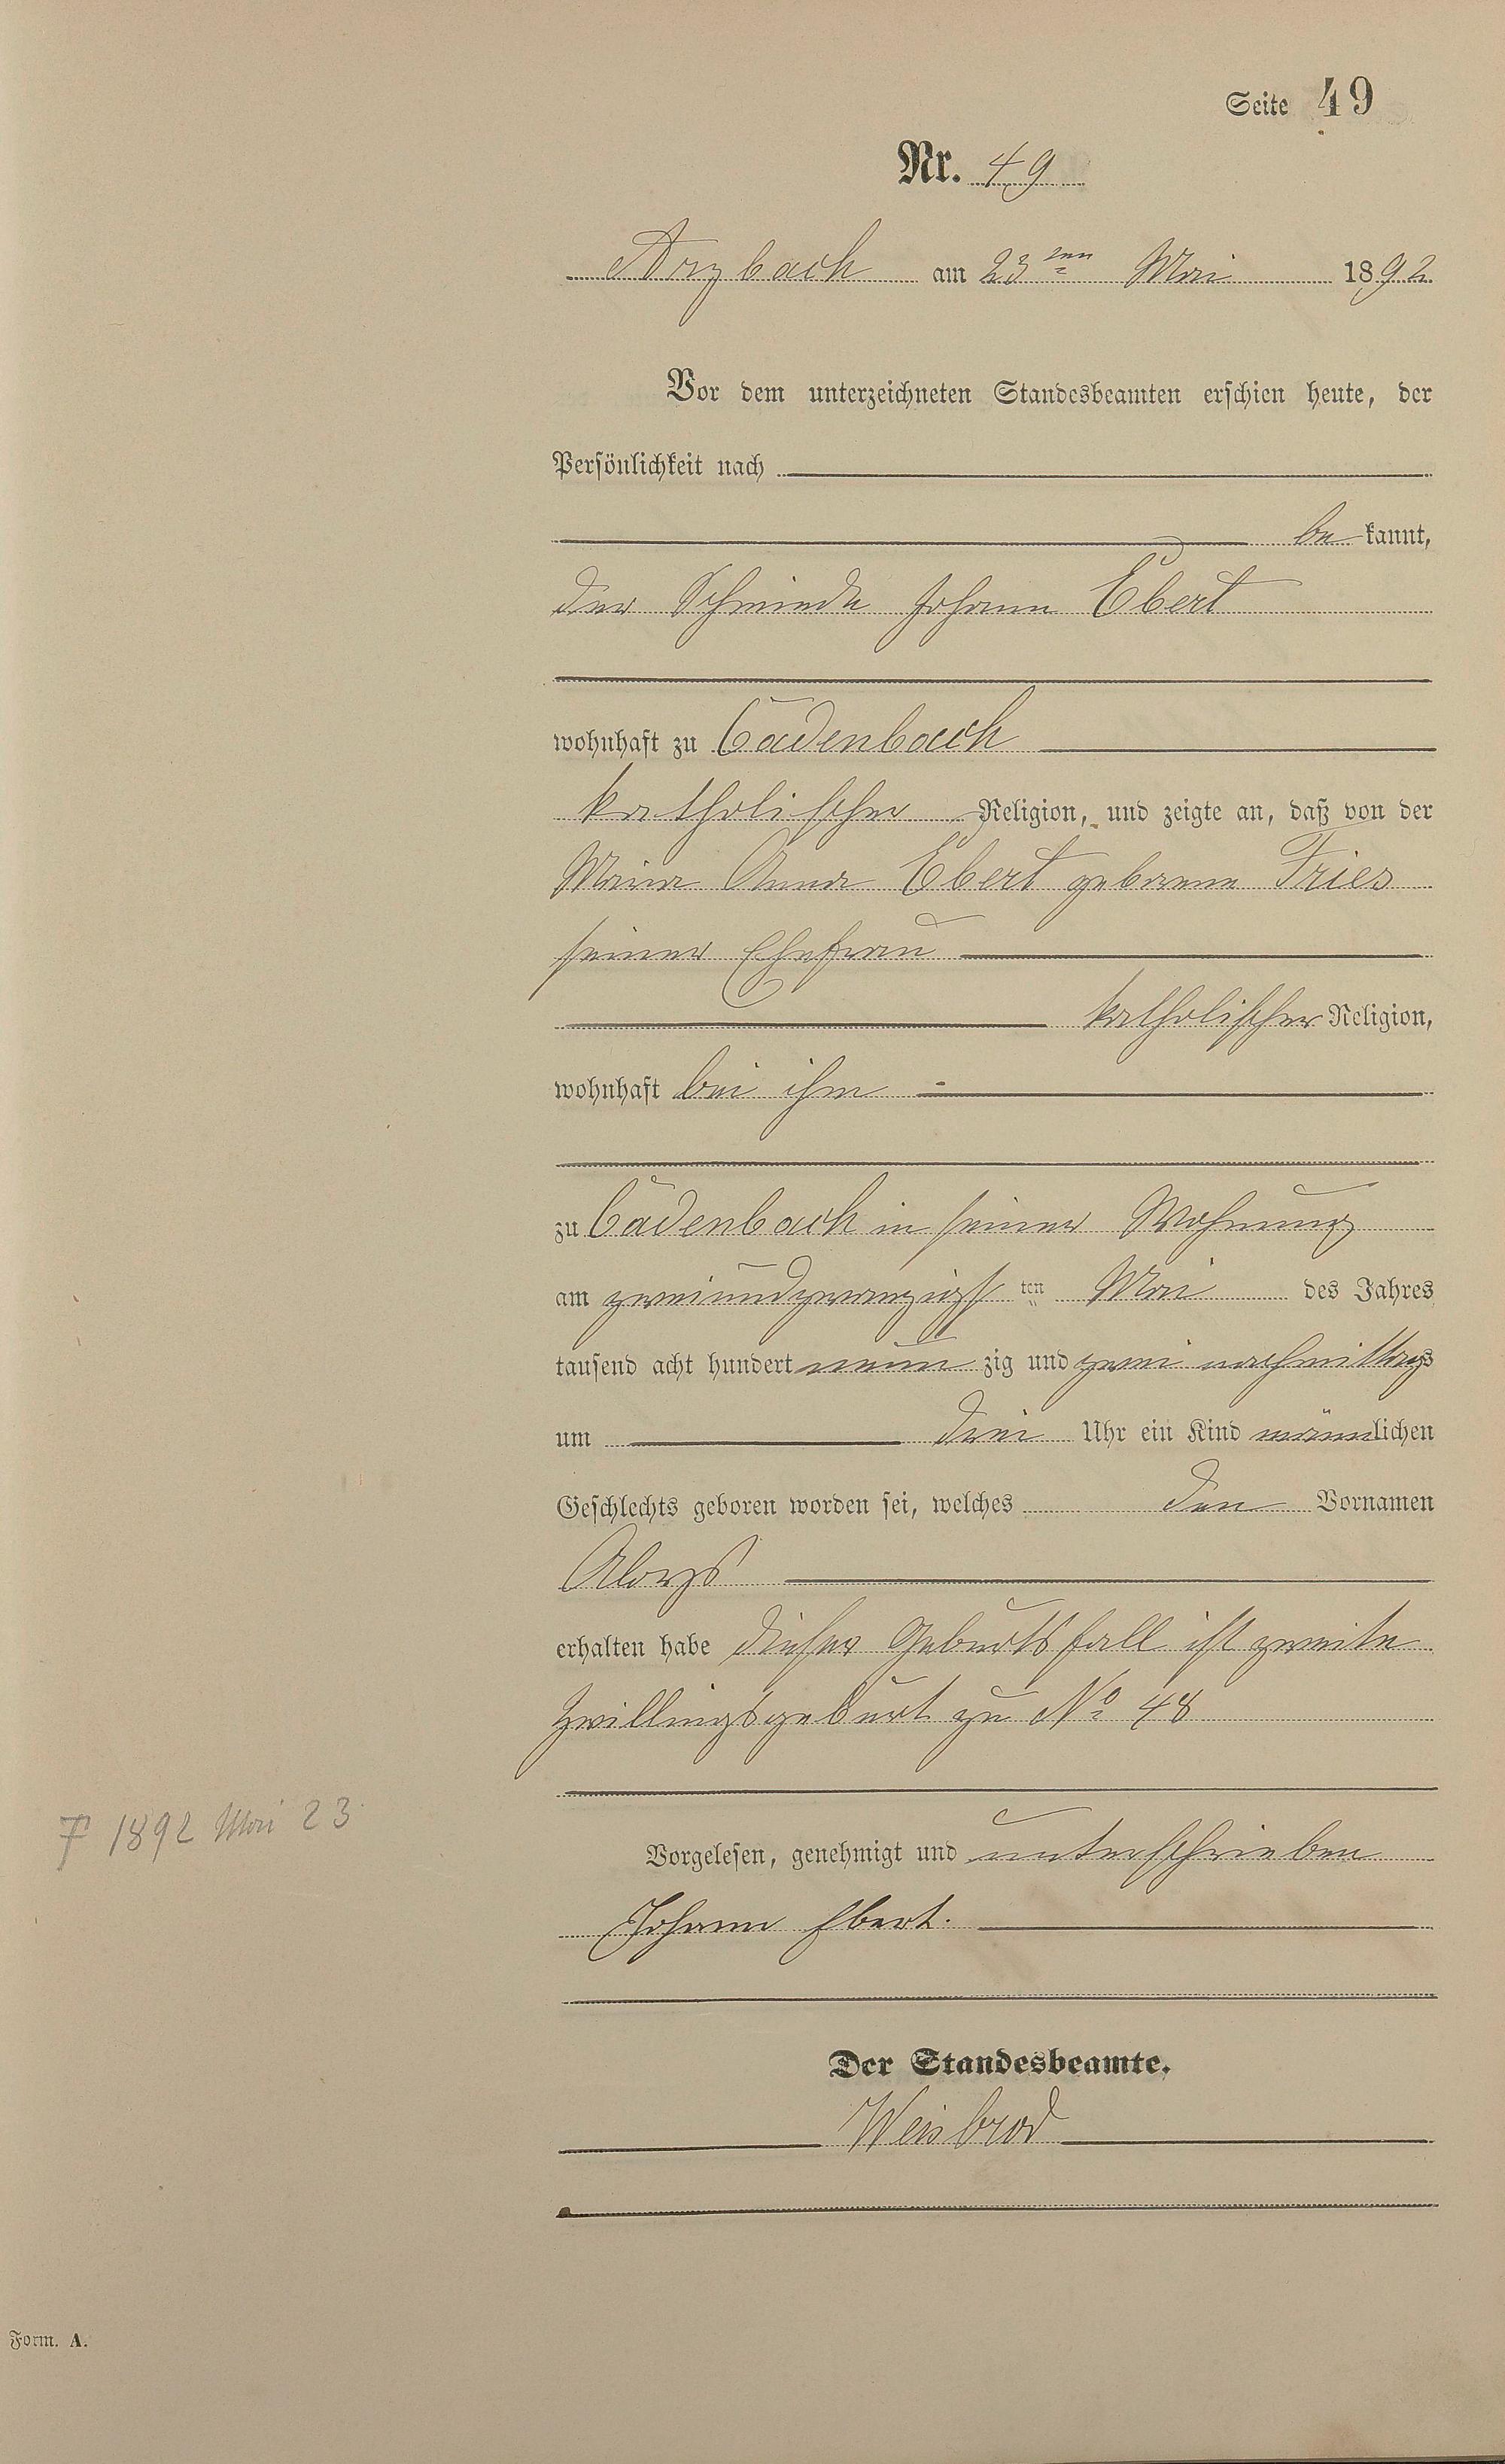 Seite 49
Nr. 49
Arzbach am 23ten Mai 1892
Vor dem unterzeichneten Standesbeamten erschien heute, der
Persönlichkeit nach
be kannt,
der Schmiede Johann Ebert
wohnhaft zu Cadenbach
katholischer Religion, und zeigte an, daß von der
Maria Anna Ebert geborene Fries
seiner Ehefrau
katholischer Religion,
wohnhaft bei ihm
zu Cadenbach in seiner Wohnung
am zweiundzwanzigsten Mai des Jahres
tausend acht hundert neun zig und zwei nachmittags
um drei Uhr ein Kind männlichen
Geschlechts geboren worden sei, welches den Vornamen
Aloys
erhalten habe dieser Geburtsfall ist zweite
Zwillingsgeburt zu No 48
† 1892 Mai 23
Vorgelesen, genehmigt und unterschrieben
Johann Ebert.
Der Standesbeamte.
Weisbrod
Form. A.